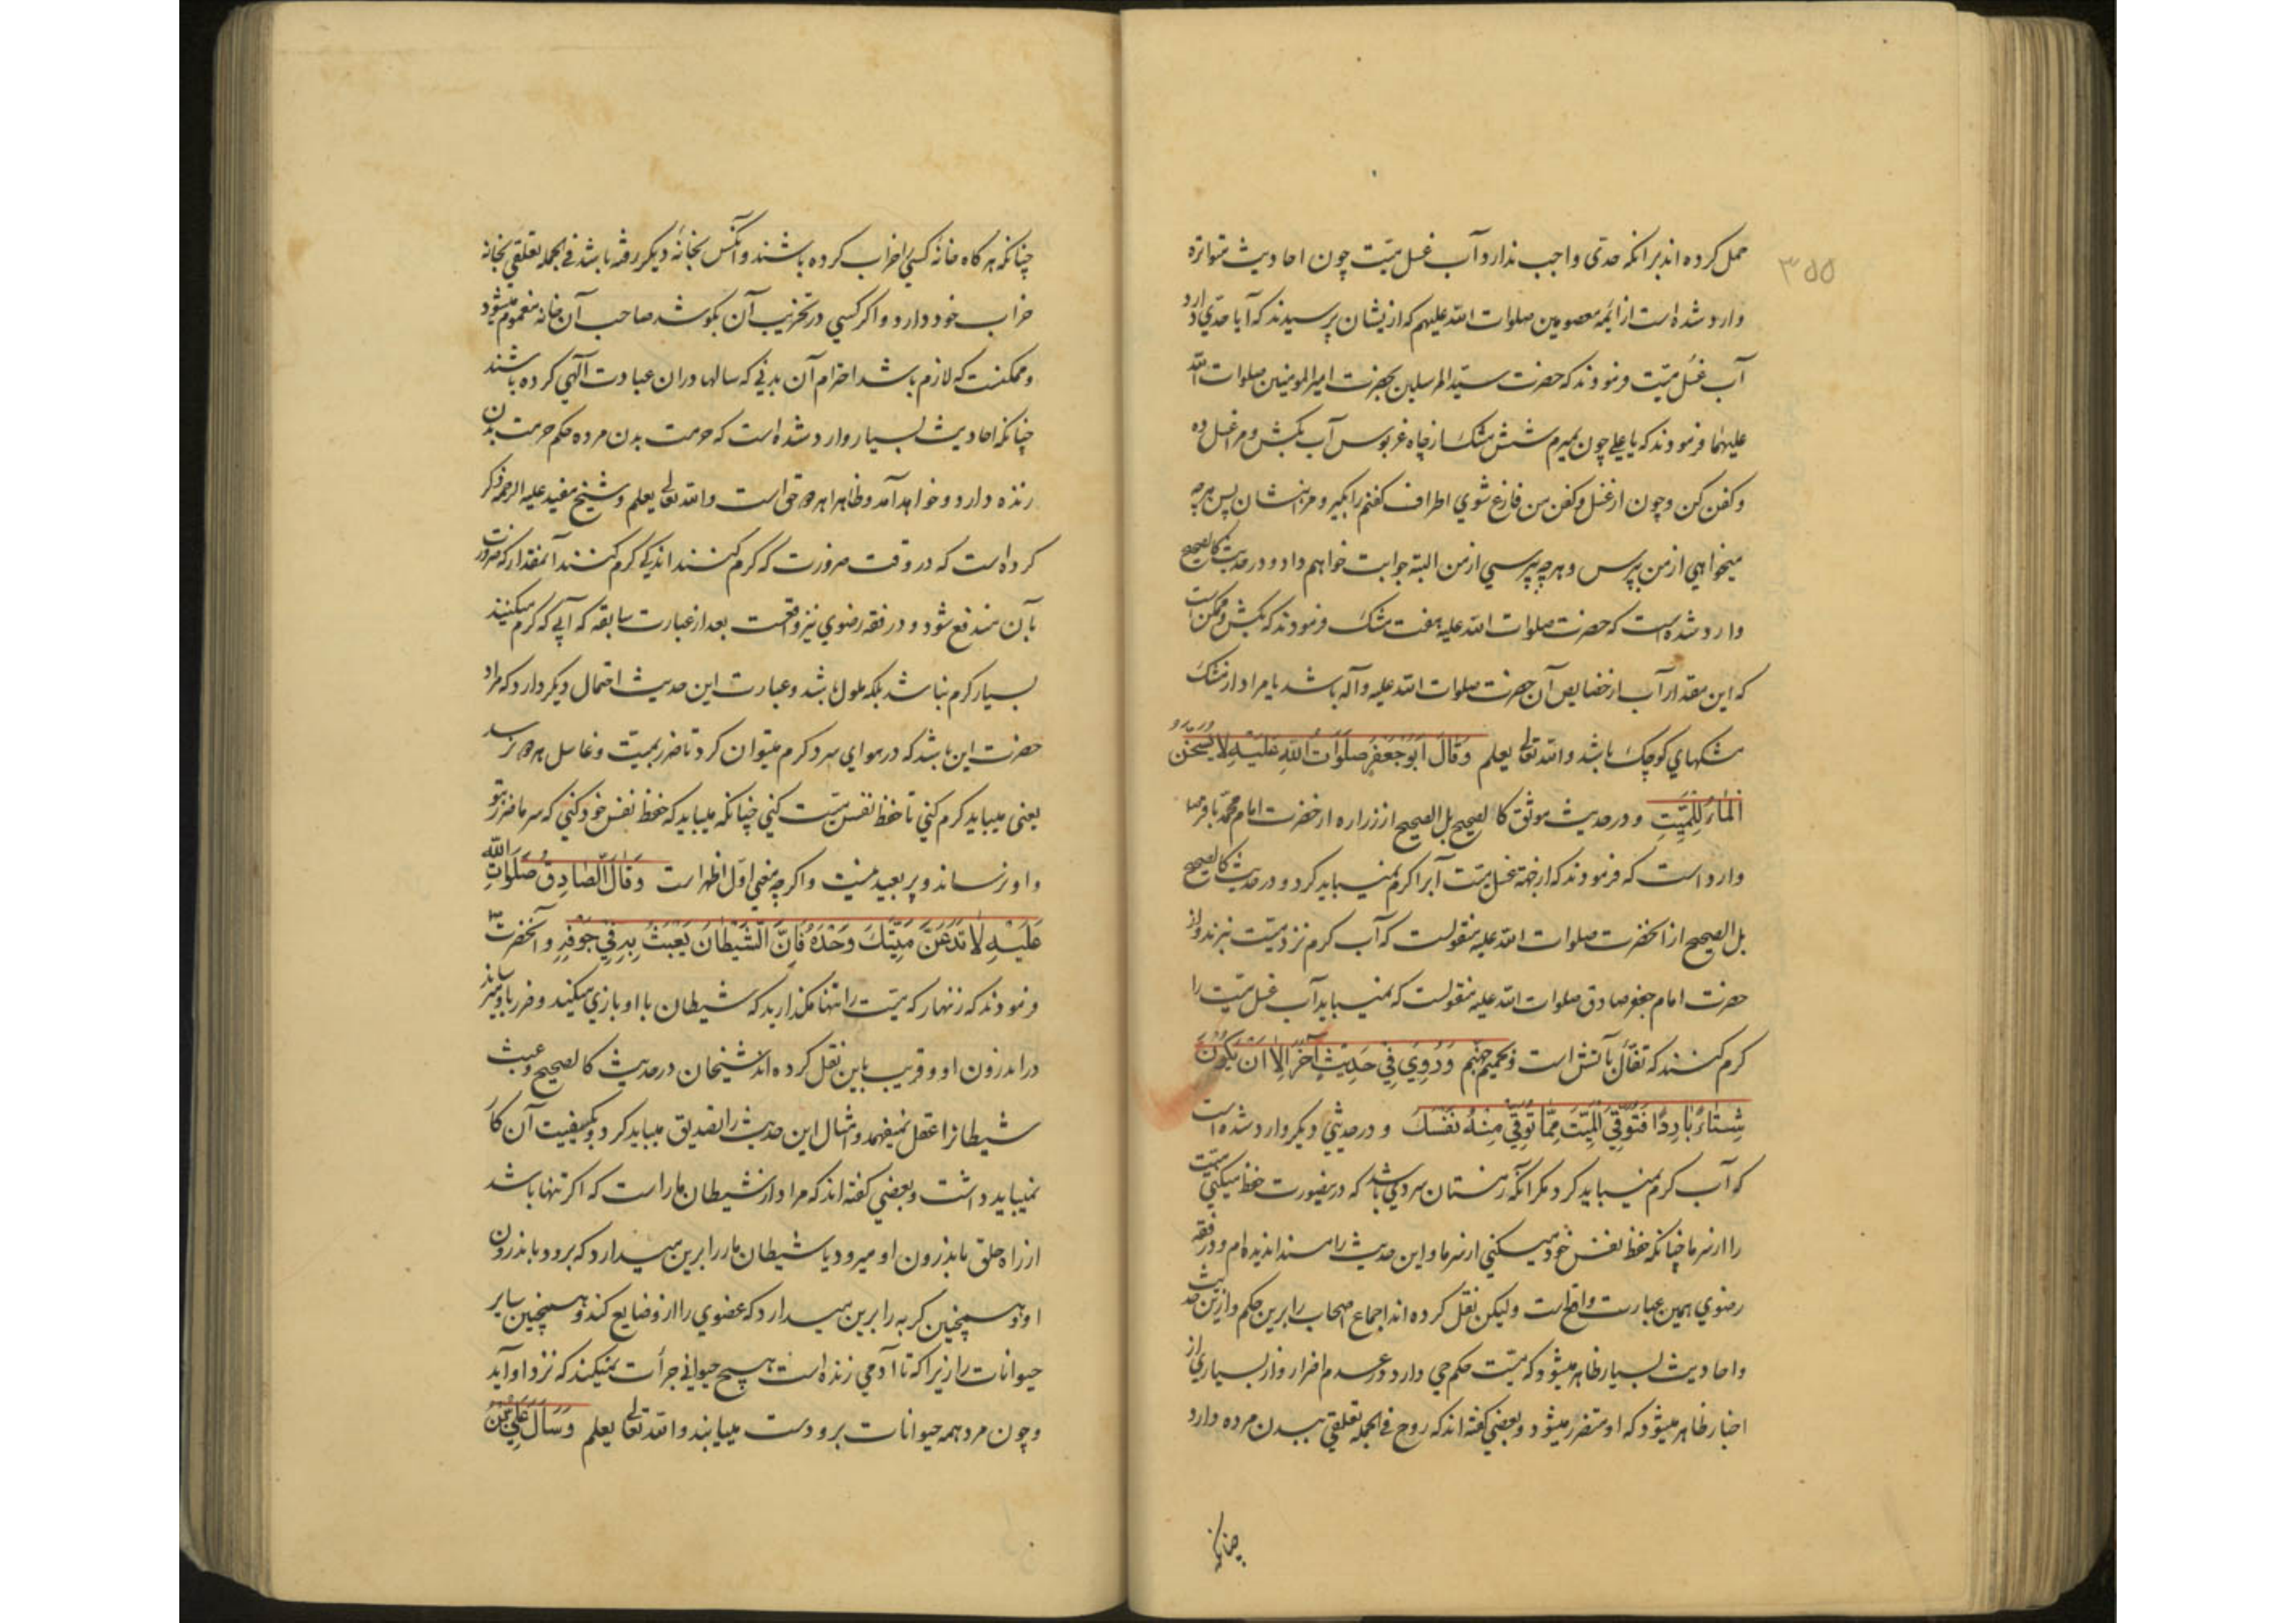 ۳۵۵
حمل کرده اند برانکه حدّی واجب ندارد و آب غسل میّت چون احادیث متواتره
وارد شده است از ائمه معصومین صلوات الله علیهم که ازیشان پرسیدند که آیا حدّی دارد
آب غسل میّت فرمودند که حضرت سیّد المرسلین بحضرت امیر المومنین صلوات الله
علیهما فرمودند که یا علی چون بمیرم شش مشک از چاه غربوس آب بکش و مرا غسل ده
و کفن کن و چون از غسل و کفن من فارغ شوي اطراف کفنم را بکیر و مرا بنشان پس هرچه
میخواهي از من بپرس و هرچه بپرسي از من البته جوابت خواهم داد و در حدیث کالصحیح
وارد شده است که حضرت صلوات الله علیه هفت مشک فرمودند که بکش و ممکن است
که این مقدار آب از خصایص آن حضرت صلوات الله علیه و آله باشد یا مراد از مشک
مشکهاي کوچک باشد والله تعالی یعلم وَقَالَ اَبُوجَعْفَرٍ صَلَوَاتُ اللّهِ عَلَیْهِ لَا یُسَخَّنُ
الْمَاءُ لِلْمَیِّتِ و در حدیث موثق کالصحیح بل الصحیح از زراره از حضرت امام محمّد باقر صلوات
وارد است که فرمودند که از جهة غسل میّت آبرا کرم نمیباید کرد و در حدیث کالصحیح
بل الصحیح از انحضرت صلوات الله علیه منقولست که آب کرم نزد میّت نبرند و از
حضرت امام جعفر صادق صلوات الله علیه منقولست که نمیباید آب غسل میّت را
کرم کنند که تفأّل بآتش است و حمیم جهنم وَرُوِيَ فِي حَدِیثٍ آخَرَ اِلاَّ اَنْ یَکُونَ
شِتَاءً بَارِدًا فَتُوَقِّيَ الْمَیِّتَ مِمَّا تُوَقِّي مِنْهُ نَفْسَکَ و در حدیثي دیکر وارد شده است
که آب کرم نمیباید کرد مکر آنکه زمستان سردي باشد که درینصورت حفظ میکني میّت
را از سرما چنانکه حفظ نفس خود میکني از سرما و این حدیث را مسند اندیده ام و در فقه
رضوي همین عبارت واقع است و لیکن نقل کرده اند اجماع اصحاب را برین حکم و ازین حدیث
و احادیث بسیار ظاهر میشود که میّت حکم حي دارد در عدم اضرار و از بسیاري از
اخبار ظاهر میشود که او متضرر میشود و بعضي کفته اند که روح في الجمله تعلقي ببدن مرده دارد
چنانکه
چنانکه هرکاه خانه کسي را خراب کرده باشند و آنکس بخانه دیکر رفته باشد في الجمله تعلقي بخانه
خراب خود دارد و اکر کسي در تخریب آن بکوشد صاحب آن خانه مغموم میشود
و ممکنست که لازم باشد احترام آن بدني که سالها دران عبادت الهي کرده باشند
چنانکه احادیث بسیار وارد شده است که حرمت بدن مرده حکم حرمت بدن
زنده دارد و خواهد آمد و ظاهرا هر دو حق است والله تعالی یعلم و شیخ مفید علیه الرحمه ذکر
کرده است که در وقت ضرورت که کرم کنند اندکي کرم کنند آنمقدار که ضرورت
بآن مندفع شود و در فقه رضوي نیز واقعست بعد از عبارت سابقه که آبي که کرم میکنند
بسیار کرم نباشد بلکه ملول باشد و عبارت این حدیث احتمال دیکر دارد که مراد
حضرت این باشد که در هواي سرد کرم میتوان کرد تا ضرر بمیّت و غاسل هر دو نرسد
یعنی میباید کرم کني تا حفظ نفس میّت کني چنانکه میباید که حفظ نفس خود کني که سرما ضرر بتو
و او نرساند و پر بعید نیست و اکرچه معني اول اظهر است وَقَالَ الصَّادِقُ صَلَوَاتُ اللّهِ
عَلَیْهِ لَا تَدَعَنَّ مَیِّتَکَ وَحْدَهُ فَاِنَّ الشَّیْطَانَ یَعْبَثُ بِهِ فِي جَوْفِهِ و آنحضرت
فرمودند که زنهار که میّت را تنها مکذارید که شیطان با او بازي میکند و ضرر باو میرساند
در اندرون او و قریب باین نقل کرده اند شیخان در حدیث کالصحیح و عبث
شیطانرا عقل نمیفهمد و امثال این حدیث را تصدیق میباید کرد و بکیفیت آن کار
نمیباید داشت و بعضي کفته اند که مراد از شیطان مار است که اکر تنها باشد
از راه حلق باندرون او میرود یا شیطان مار را برین میدارد که برود باندرون
او و همچنین کربه را برین میدارد که عضوي را از و ضایع کند و همچنین سایر
حیوانات را زیرا که تا آدمي زنده است هیچ حیواني جرأت نمیکند که نزد او آید
و چون مرد همه حیوانات برو دست مییابند والله تعالی یعلم وَسَأَلَ عَلِيُّ بْنُ